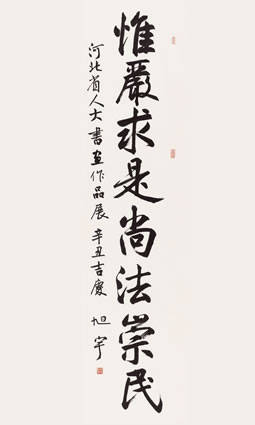 惟嚴求是尚法崇民
河北省人大書画作品展 辛丑吉慶 旭宇